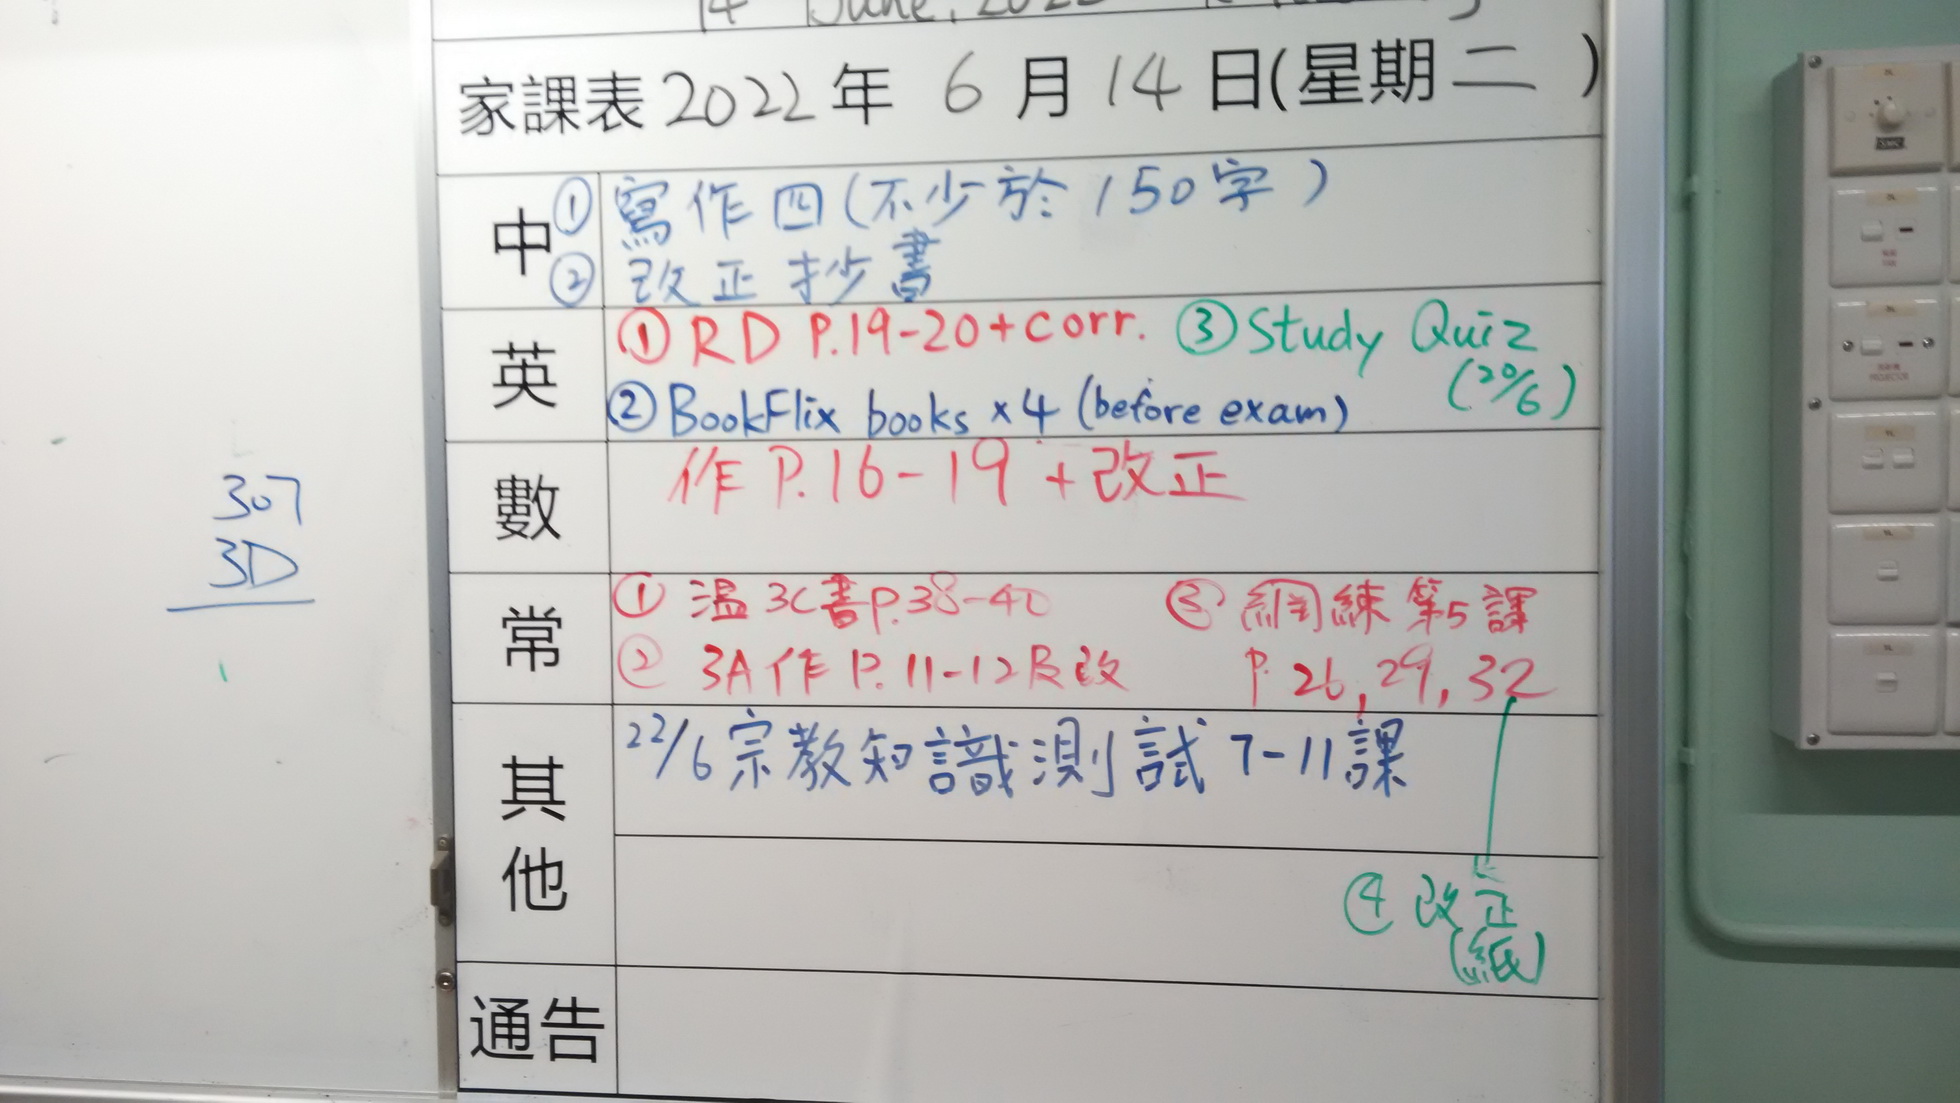 14 June, 2022
家課表2022年 6 月 14 日(星期二 )
中 ① 寫作四(不少於150字)
② 改正抄書
英 ① RD P.19-20+corr. ③ Study Quiz
(20/6)
② BookFlix books x4 (before exam)
數 作 P.16-19 + 改正
常 ① 溫3C書P.38-40 ③ 網練第5課
② 3A作P.11-12及改 P. 26, 29, 32
其他 22/6 宗教知識測試 7-11課
④ 改正
(紙)
通告
307
3D